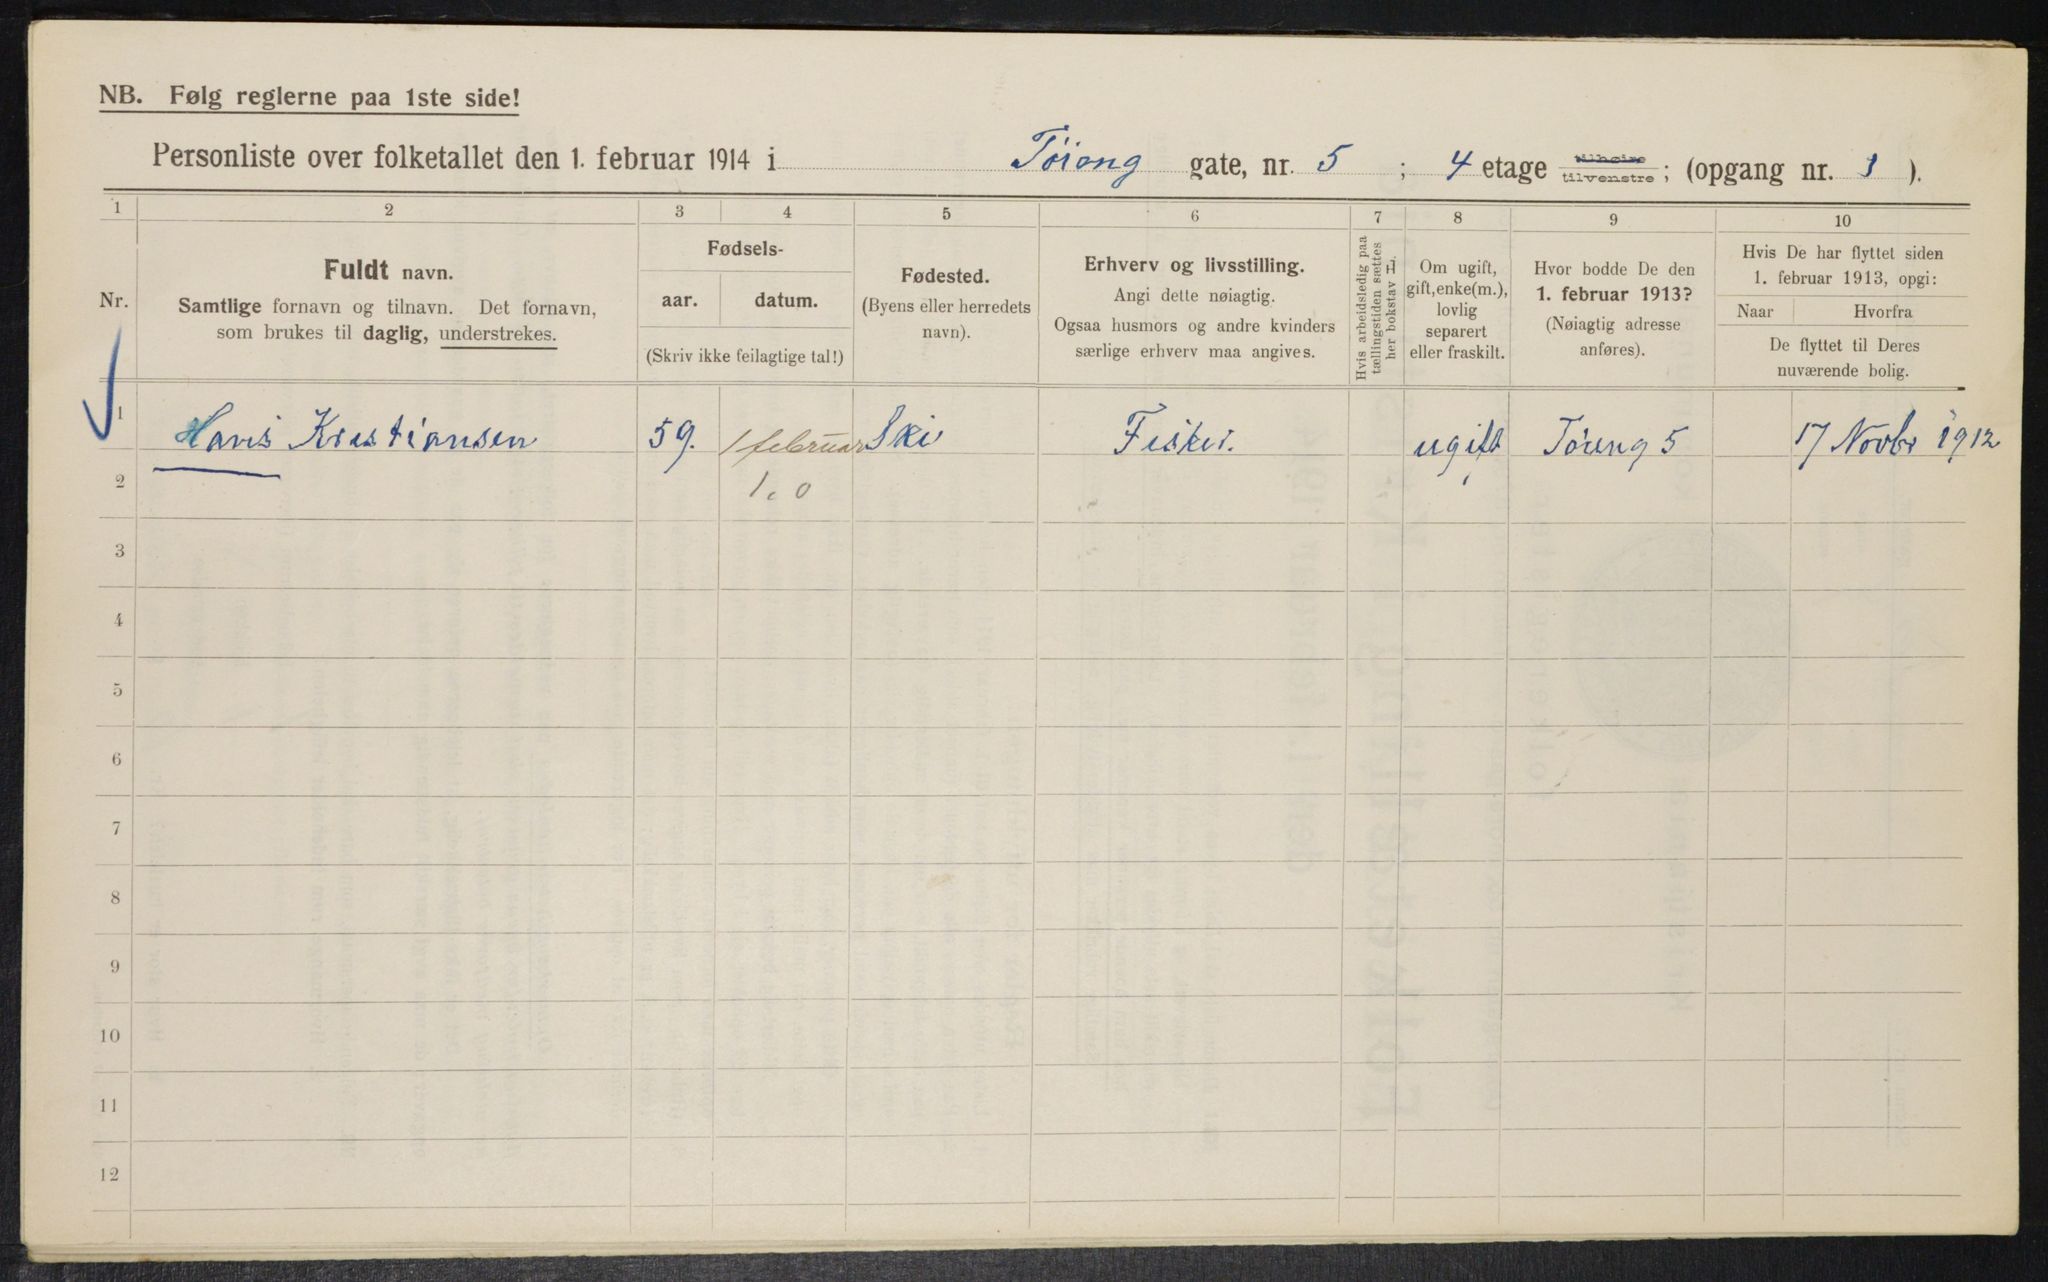 NB. Følg reglerne paa 1ste side!
Personliste over folketallet den 1. februar 1914 i Tøieng gate, nr. 5 ; 4 etage tilhøire tilvenstre ; (opgang nr. 1 ).
1 2 3 4 5 6 7 8 9 10
Nr.
Fuldt navn.
Samtlige fornavn og tilnavn. Det fornavn,
som brukes til daglig, understrekes.
Fødsels-
aar. datum.
(Skriv ikke feilagtige tal!)
Fødested.
(Byens eller herredets
navn).
Erhverv og livsstilling.
Angi dette nøiagtig.
Ogsaa husmors og andre kvinders
særlige erhverv maa angives.
Hvis arbeidsledig paa
tællingstiden sættes
her bokstav L.
Om ugift,
gift, enke(m.),
lovlig
separert
eller fraskilt.
Hvor bodde De den
1. februar 1913?
(Nøiagtig adresse
anføres).
Hvis De har flyttet siden
1. februar 1913, opgi:
Naar Hvorfra
De flyttet til Deres
nuværende bolig.
1 Hans Kristiansen 59. 1 februar Ski Fisker. ugift Tøieng 5 17 Novbr 1912
2 1. 0
3
4
5
6
7
8
9
10
11
12